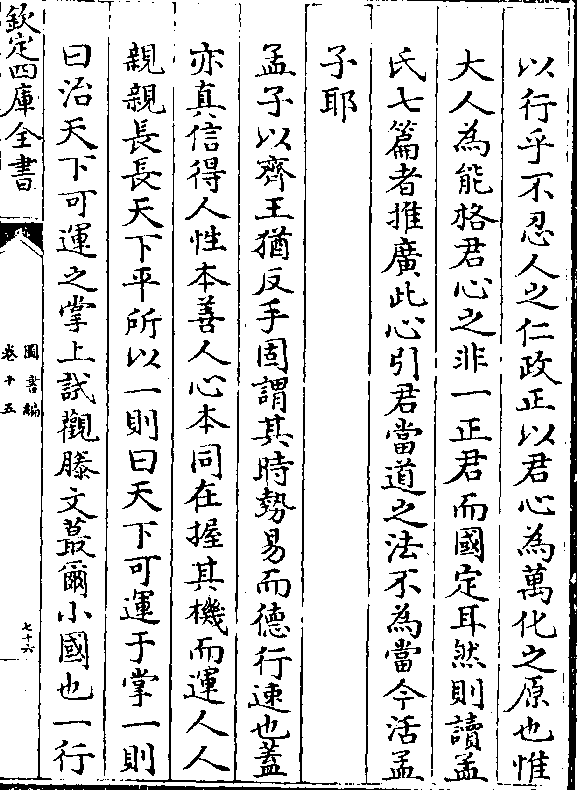 以行乎不忍人之仁政正以君心為萬化之原也惟
大人為能格君心之非一正君而國定耳然則讀孟
氏七篇者推廣此心引君當道之法不為當今活孟
子耶
孟子以齊王猶反手固謂其時勢易而德行速也蓋
亦真信得人性本善人心本同在握其機而運人人
親親長長天下平所以一則曰天下可運于掌一則
曰治天下可運之掌上試觀滕文蕞爾小國也一行
欽定四庫全書
圖書編
卷十五
七十六